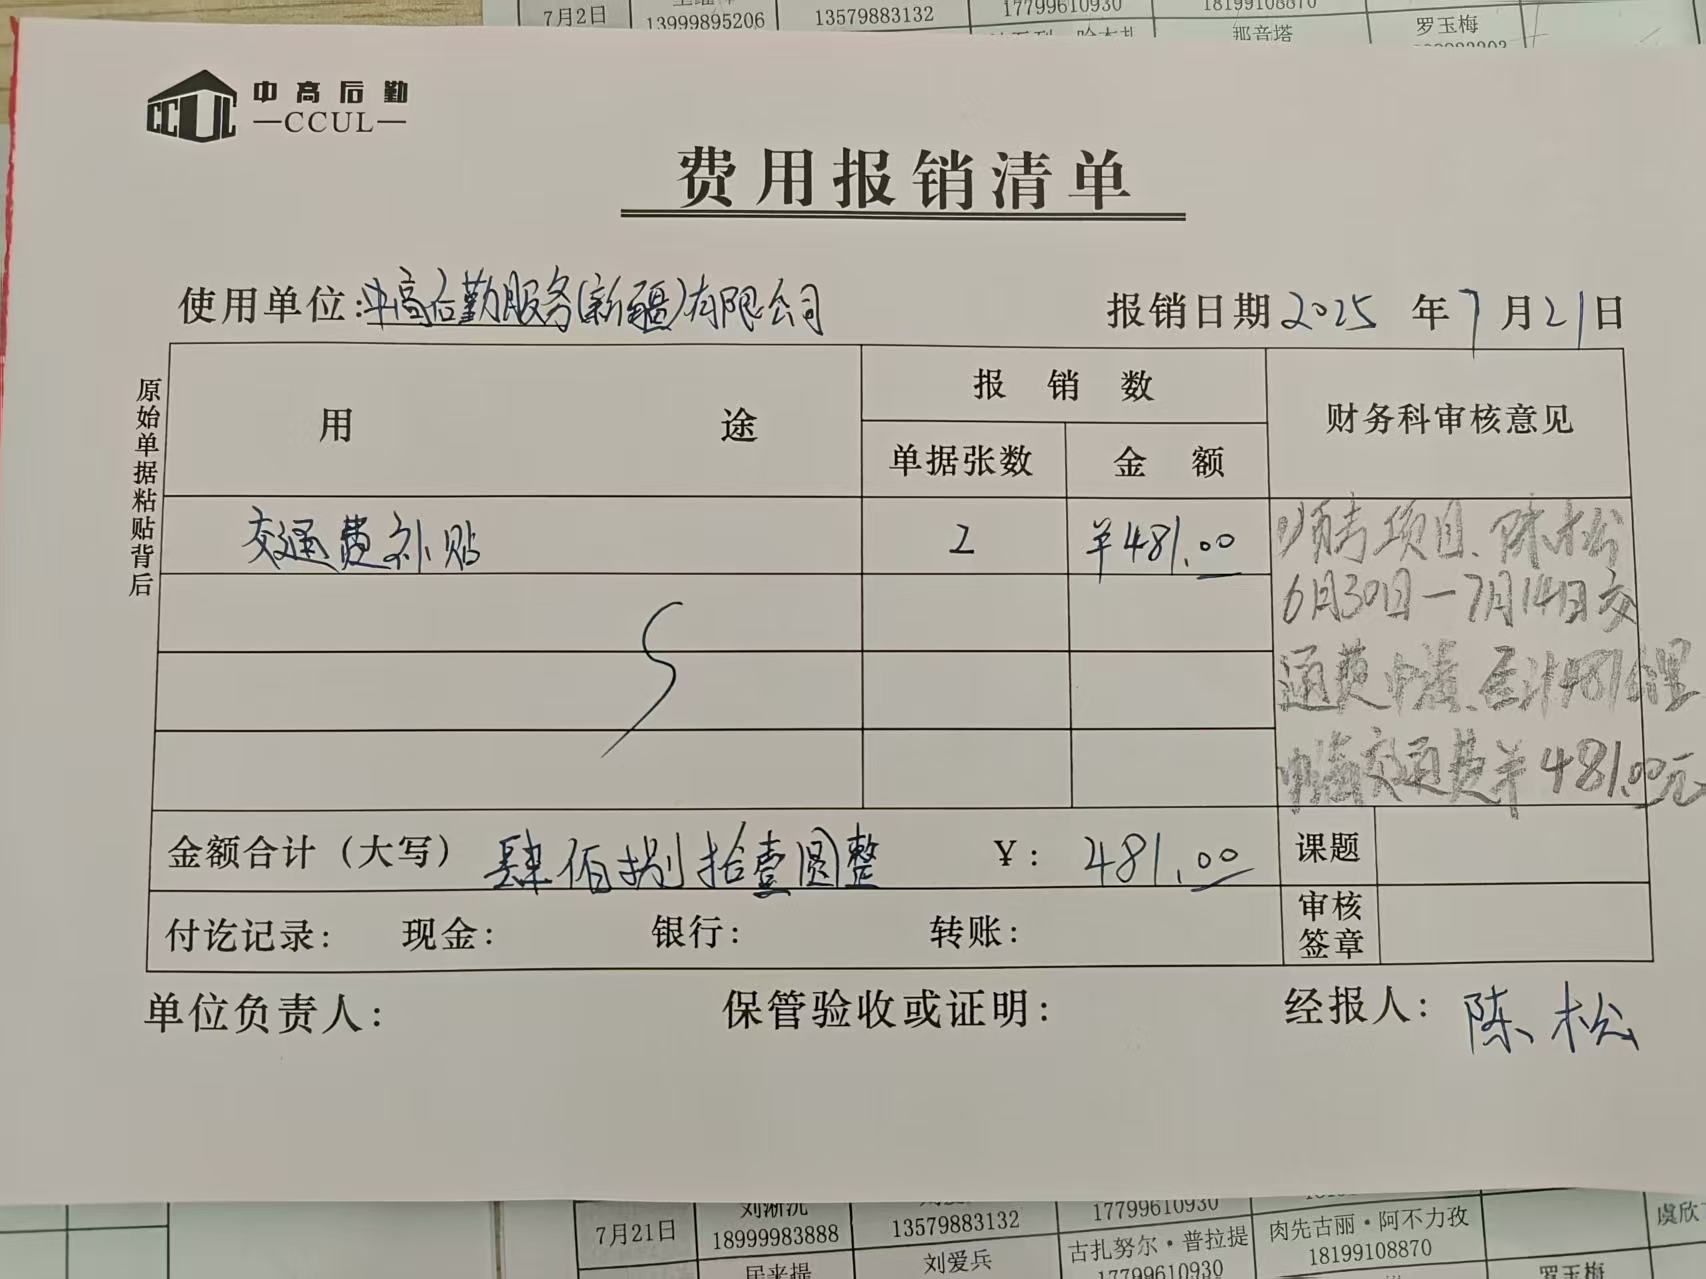 7月2日
13999895206
13579883132
17799610930
18199108870
那音塔
罗玉梅
中高后勤
CCUL
—CCUL—
费用报销清单
使用单位:中高后勤服务(新疆)有限公司
报销日期2025年7月21日
原始单据粘贴背后
用途
报销数
财务科审核意见
单据张数
金额
交通费补贴
2
¥481.00
项目、陈松
6月30日—7月14日交
通费申请、合计481公里
申请交通费¥481.00元
金额合计(大写) 肆佰捌拾壹圆整 ¥: 481.00
课题
付讫记录: 现金: 银行: 转账:
审核
签章
单位负责人:
保管验收或证明:
经报人: 陈松
7月21日
18999983888
13579883132
17799610930
肉先古丽·阿不力孜
18199108870
刘爱兵
古扎努尔·普拉提
17799610930
罗玉梅